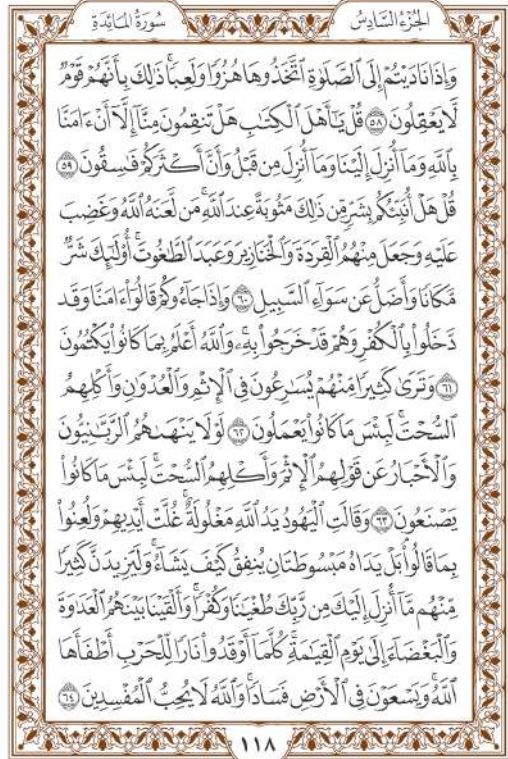 الجُزْءُ السَّادِسُ سُورَةُ المَائِدَةِ
وَإِذَا نَادَيْتُمْ إِلَى ٱلصَّلَوٰةِ ٱتَّخَذُوهَا هُزُوًا وَلَعِبًاۚ ذَٰلِكَ بِأَنَّهُمْ قَوْمٌ
لَّا يَعْقِلُونَ ٥٨ قُلْ يَٰٓأَهْلَ ٱلْكِتَٰبِ هَلْ تَنقِمُونَ مِنَّآ إِلَّآ أَنْ ءَامَنَّا
بِٱللَّهِ وَمَآ أُنزِلَ إِلَيْنَا وَمَآ أُنزِلَ مِن قَبْلُ وَأَنَّ أَكْثَرَكُمْ فَٰسِقُونَ ٥٩
قُلْ هَلْ أُنَبِّئُكُم بِشَرٍّ مِّن ذَٰلِكَ مَثُوبَةً عِندَ ٱللَّهِۚ مَن لَّعَنَهُ ٱللَّهُ وَغَضِبَ
عَلَيْهِ وَجَعَلَ مِنْهُمُ ٱلْقِرَدَةَ وَٱلْخَنَازِيرَ وَعَبَدَ ٱلطَّٰغُوتَۚ أُو۟لَٰٓئِكَ شَرٌّ
مَّكَانًا وَأَضَلُّ عَن سَوَآءِ ٱلسَّبِيلِ ٦٠ وَإِذَا جَآءُوكُمْ قَالُوٓا۟ ءَامَنَّا وَقَد
دَّخَلُوا۟ بِٱلْكُفْرِ وَهُمْ قَدْ خَرَجُوا۟ بِهِۦۚ وَٱللَّهُ أَعْلَمُ بِمَا كَانُوا۟ يَكْتُمُونَ
٦١ وَتَرَىٰ كَثِيرًا مِّنْهُمْ يُسَٰرِعُونَ فِى ٱلْإِثْمِ وَٱلْعُدْوَٰنِ وَأَكْلِهِمُ
ٱلسُّحْتَۚ لَبِئْسَ مَا كَانُوا۟ يَعْمَلُونَ ٦٢ لَوْلَا يَنْهَىٰهُمُ ٱلرَّبَّٰنِيُّونَ
وَٱلْأَحْبَارُ عَن قَوْلِهِمُ ٱلْإِثْمَ وَأَكْلِهِمُ ٱلسُّحْتَۚ لَبِئْسَ مَا كَانُوا۟
يَصْنَعُونَ ٦٣ وَقَالَتِ ٱلْيَهُودُ يَدُ ٱللَّهِ مَغْلُولَةٌۚ غُلَّتْ أَيْدِيهِمْ وَلُعِنُوا۟
بِمَا قَالُوا۟ۘ بَلْ يَدَاهُ مَبْسُوطَتَانِ يُنفِقُ كَيْفَ يَشَآءُۚ وَلَيَزِيدَنَّ كَثِيرًا
مِّنْهُم مَّآ أُنزِلَ إِلَيْكَ مِن رَّبِّكَ طُغْيَٰنًا وَكُفْرًاۚ وَأَلْقَيْنَا بَيْنَهُمُ ٱلْعَدَٰوَةَ
وَٱلْبَغْضَآءَ إِلَىٰ يَوْمِ ٱلْقِيَٰمَةِۚ كُلَّمَآ أَوْقَدُوا۟ نَارًا لِّلْحَرْبِ أَطْفَأَهَا
ٱللَّهُۚ وَيَسْعَوْنَ فِى ٱلْأَرْضِ فَسَادًاۚ وَٱللَّهُ لَا يُحِبُّ ٱلْمُفْسِدِينَ ٦٤
١١٨